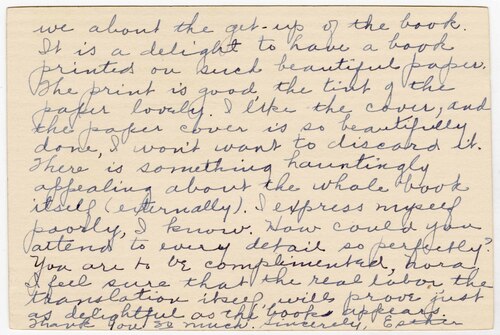 we about the get-up of the book.
It is a delight to have a book
printed on such beautiful paper.
The print is good, the tint of the
paper lovely. I like the cover, and
the paper cover is so beautifully
done, I won't want to discard it.
There is something hauntingly
appealing about the whole book
itself (externally). I express myself
poorly, I know. How could you
attend to every detail so perfectly?
You are to be complimented, Nora,
I feel sure that the real labor, the
translation itself, will prove just
as delightful as the book appears.
Thank you so much. Sincerely,